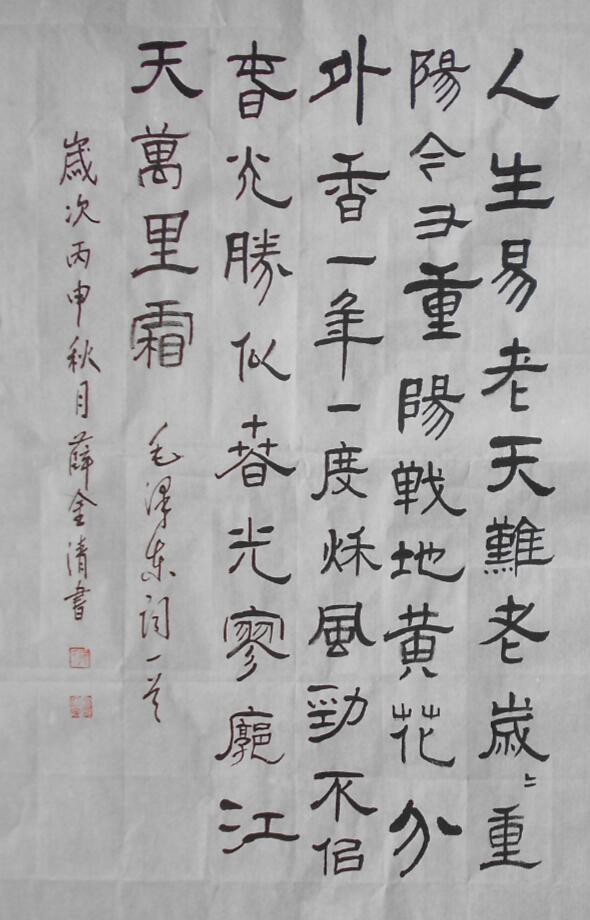 人生易老天難老歲〻重
陽今又重陽戰地黃花分
外香一年一度秌風勁不佀
春光勝似春光寥廓江
天萬里霜
毛澤東詞一首
歲次丙申秋月薛金清書